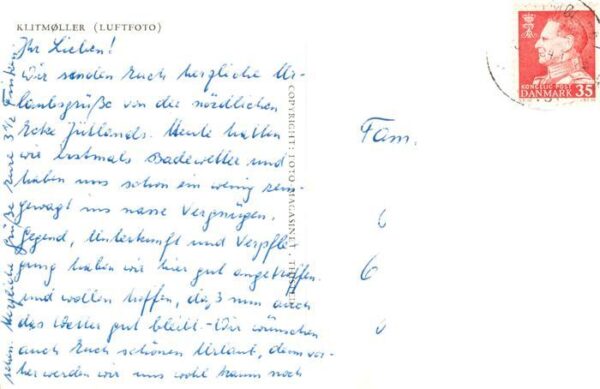 KLITMØLLER (LUFTFOTO)
Ihr Lieben!
Wir senden Euch herzliche Ur-
laubsgrüße von der nördlichen
Ecke Jütlands. Heute hatten
wir erstmals Badewetter und
haben uns schon ein wenig rein-
gewagt ins nasse Vergnügen.
Gegend, Unterkunft und Verpfle-
gung haben wir hier gut angetroffen
und wollen hoffen, daß nun auch
das Wetter gut bleibt. - Wir wünschen
auch Euch schönen Urlaub, denn vor-
her werden wir uns wohl kaum noch
sehen. Herzliche Grüße Eure 3 1/2 Finken
COPYRIGHT: FOTO-MAGASINET, THISTED
Fam.
KONGELIG POST
DANMARK 35